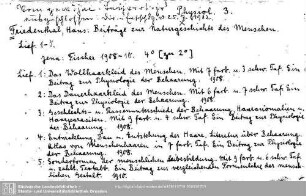 Physiol. 3.
Friedenthal, Hans: Beiträge zur Naturgeschichte des Menschen.
Lief. 1-5.
Jena: Fischer 1908-10. 4° [gr 2°]
Lief. 1: Das Wollhaarkleid des Menschen. Mit 7 farb. u. 3 schw. Taf. Ein
Beitrag zur Physiologie der Behaarung. 1908.
2: Das Dauerhaarkleid des Menschen. Mit 6 farb. u. 7 schw. Taf. Ein
Beitrag zur Physiologie der Behaarung. 1908.
3: Geschlechts- u. Rassenunterschiede der Behaarung, Haaranomalien u.
Haarparasiten. Mit 9 farb. u. 4 schw. Taf. Ein Beitrag zur Physiologie
der Behaarung. 1908.
4: Entwicklung, Bau u. Entstehung der Haare, Literatur über Behaarung.
Atlas von Menschenhaaren in 7 farb. Taf. Ein Beitrag zur Physiologie
der Behaarung. 1908.
5: Sonderformen der menschlichen Leibesbildung. Mit 9 farb. u. 6 Taf.
u. zahlr. Textabb. Ein Beitrag zur vergleichenden Formenlehre der mensch-
lichen Gestalt. 1910.